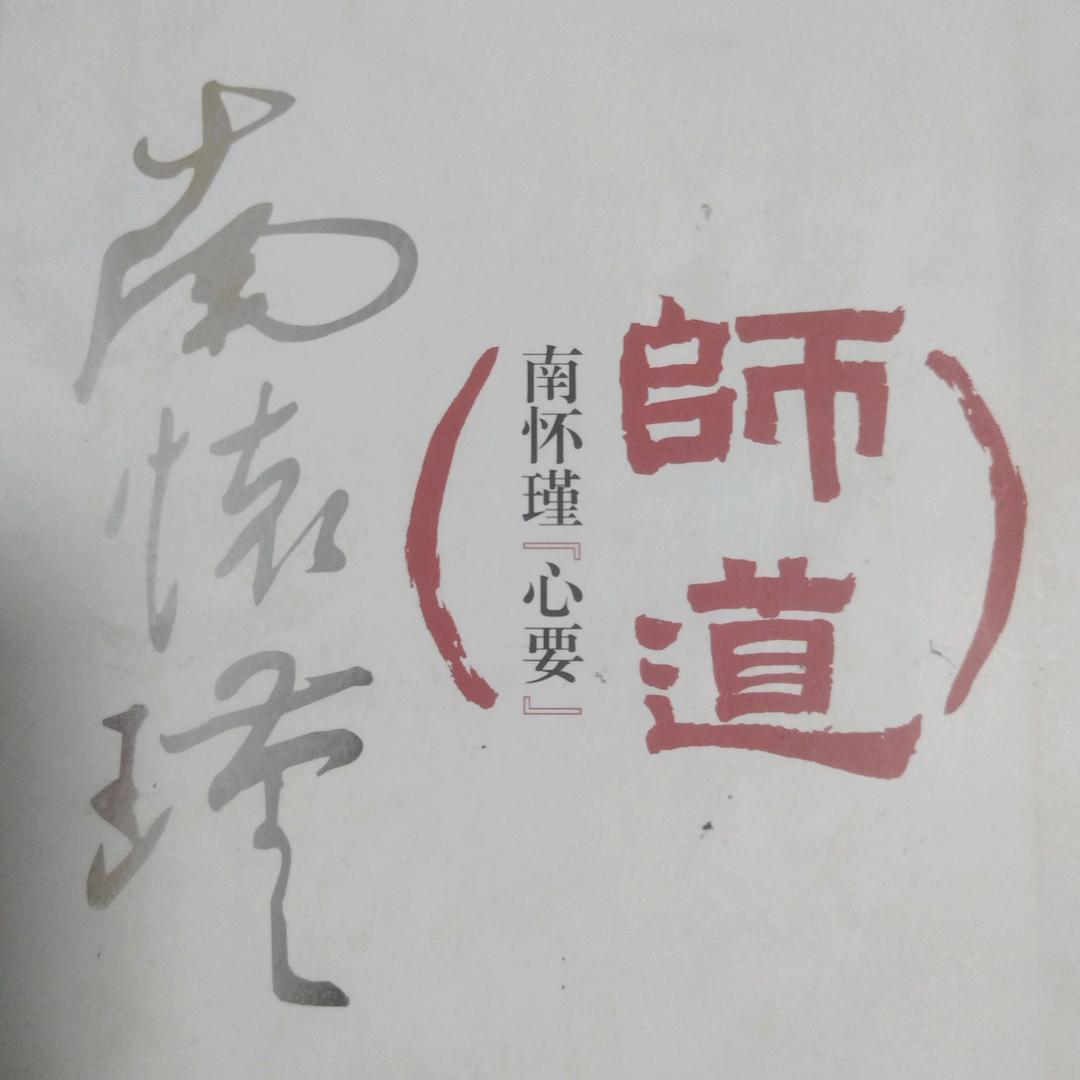 師道
南怀瑾『心要』
南懷瑾